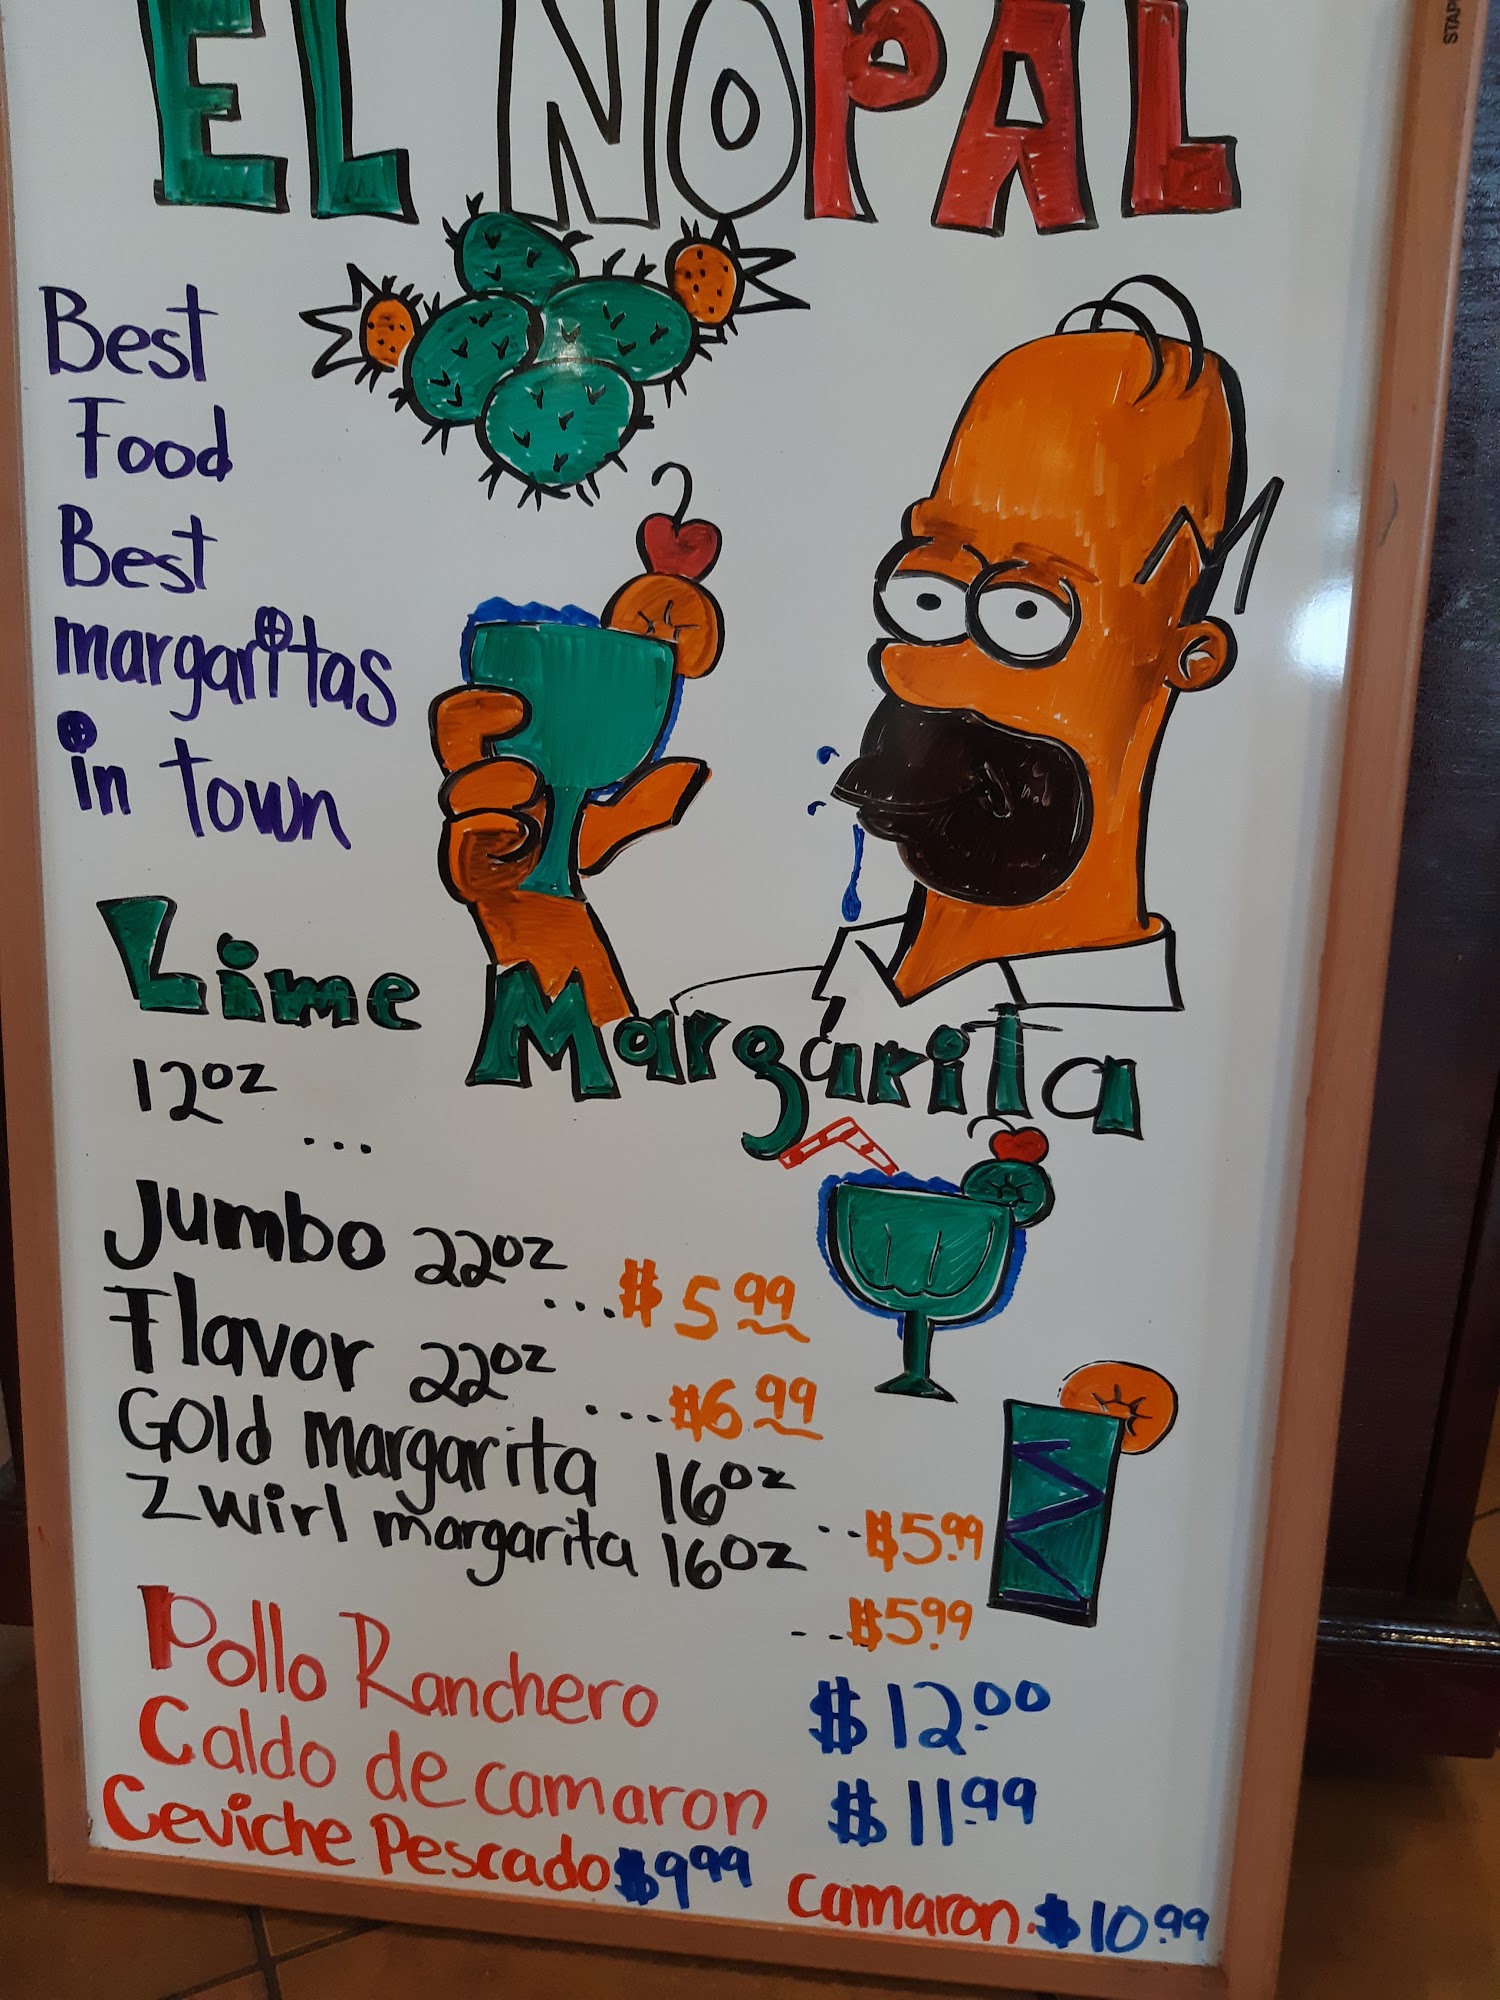 EL NOPAL
Best
Food
Best
margaritas
in town
Lime Margarita
12oz ...
Jumbo 22oz ...$5.99
Flavor 22oz ...$6.99
Gold margarita 16oz ..$5.99
Zwirl margarita 16oz ..$5.99
Pollo Ranchero $12.00
Caldo de camaron $11.99
Ceviche Pescado $9.99 camaron. $10.99
STAP